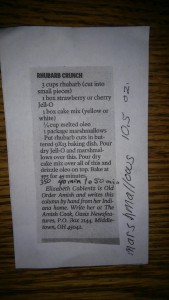 RHUBARB CRUNCH
3 cups rhubarb (cut into
small pieces)
1 box strawberry or cherry
Jell-O
1 box cake mix (yellow or
white)
1/2 cup melted oleo
1 package marshmallows
Put rhubarb cuts in but-
tered 9X13 baking dish. Pour
dry Jell-O and marshmal-
lows over this. Pour dry
cake mix over all of this and
drizzle oleo on top. Bake at
350 for minutes.
350 40 min to 50 min
Elizabeth Coblentz is Old
Order Amish and writes this
column by hand from her Indi-
ana home. Write her at The
Amish Cook, Oasis Newsfea-
tures, P.O. Box 2144, Middle-
town, OH 45042.
marshmallows 10.5 oz.